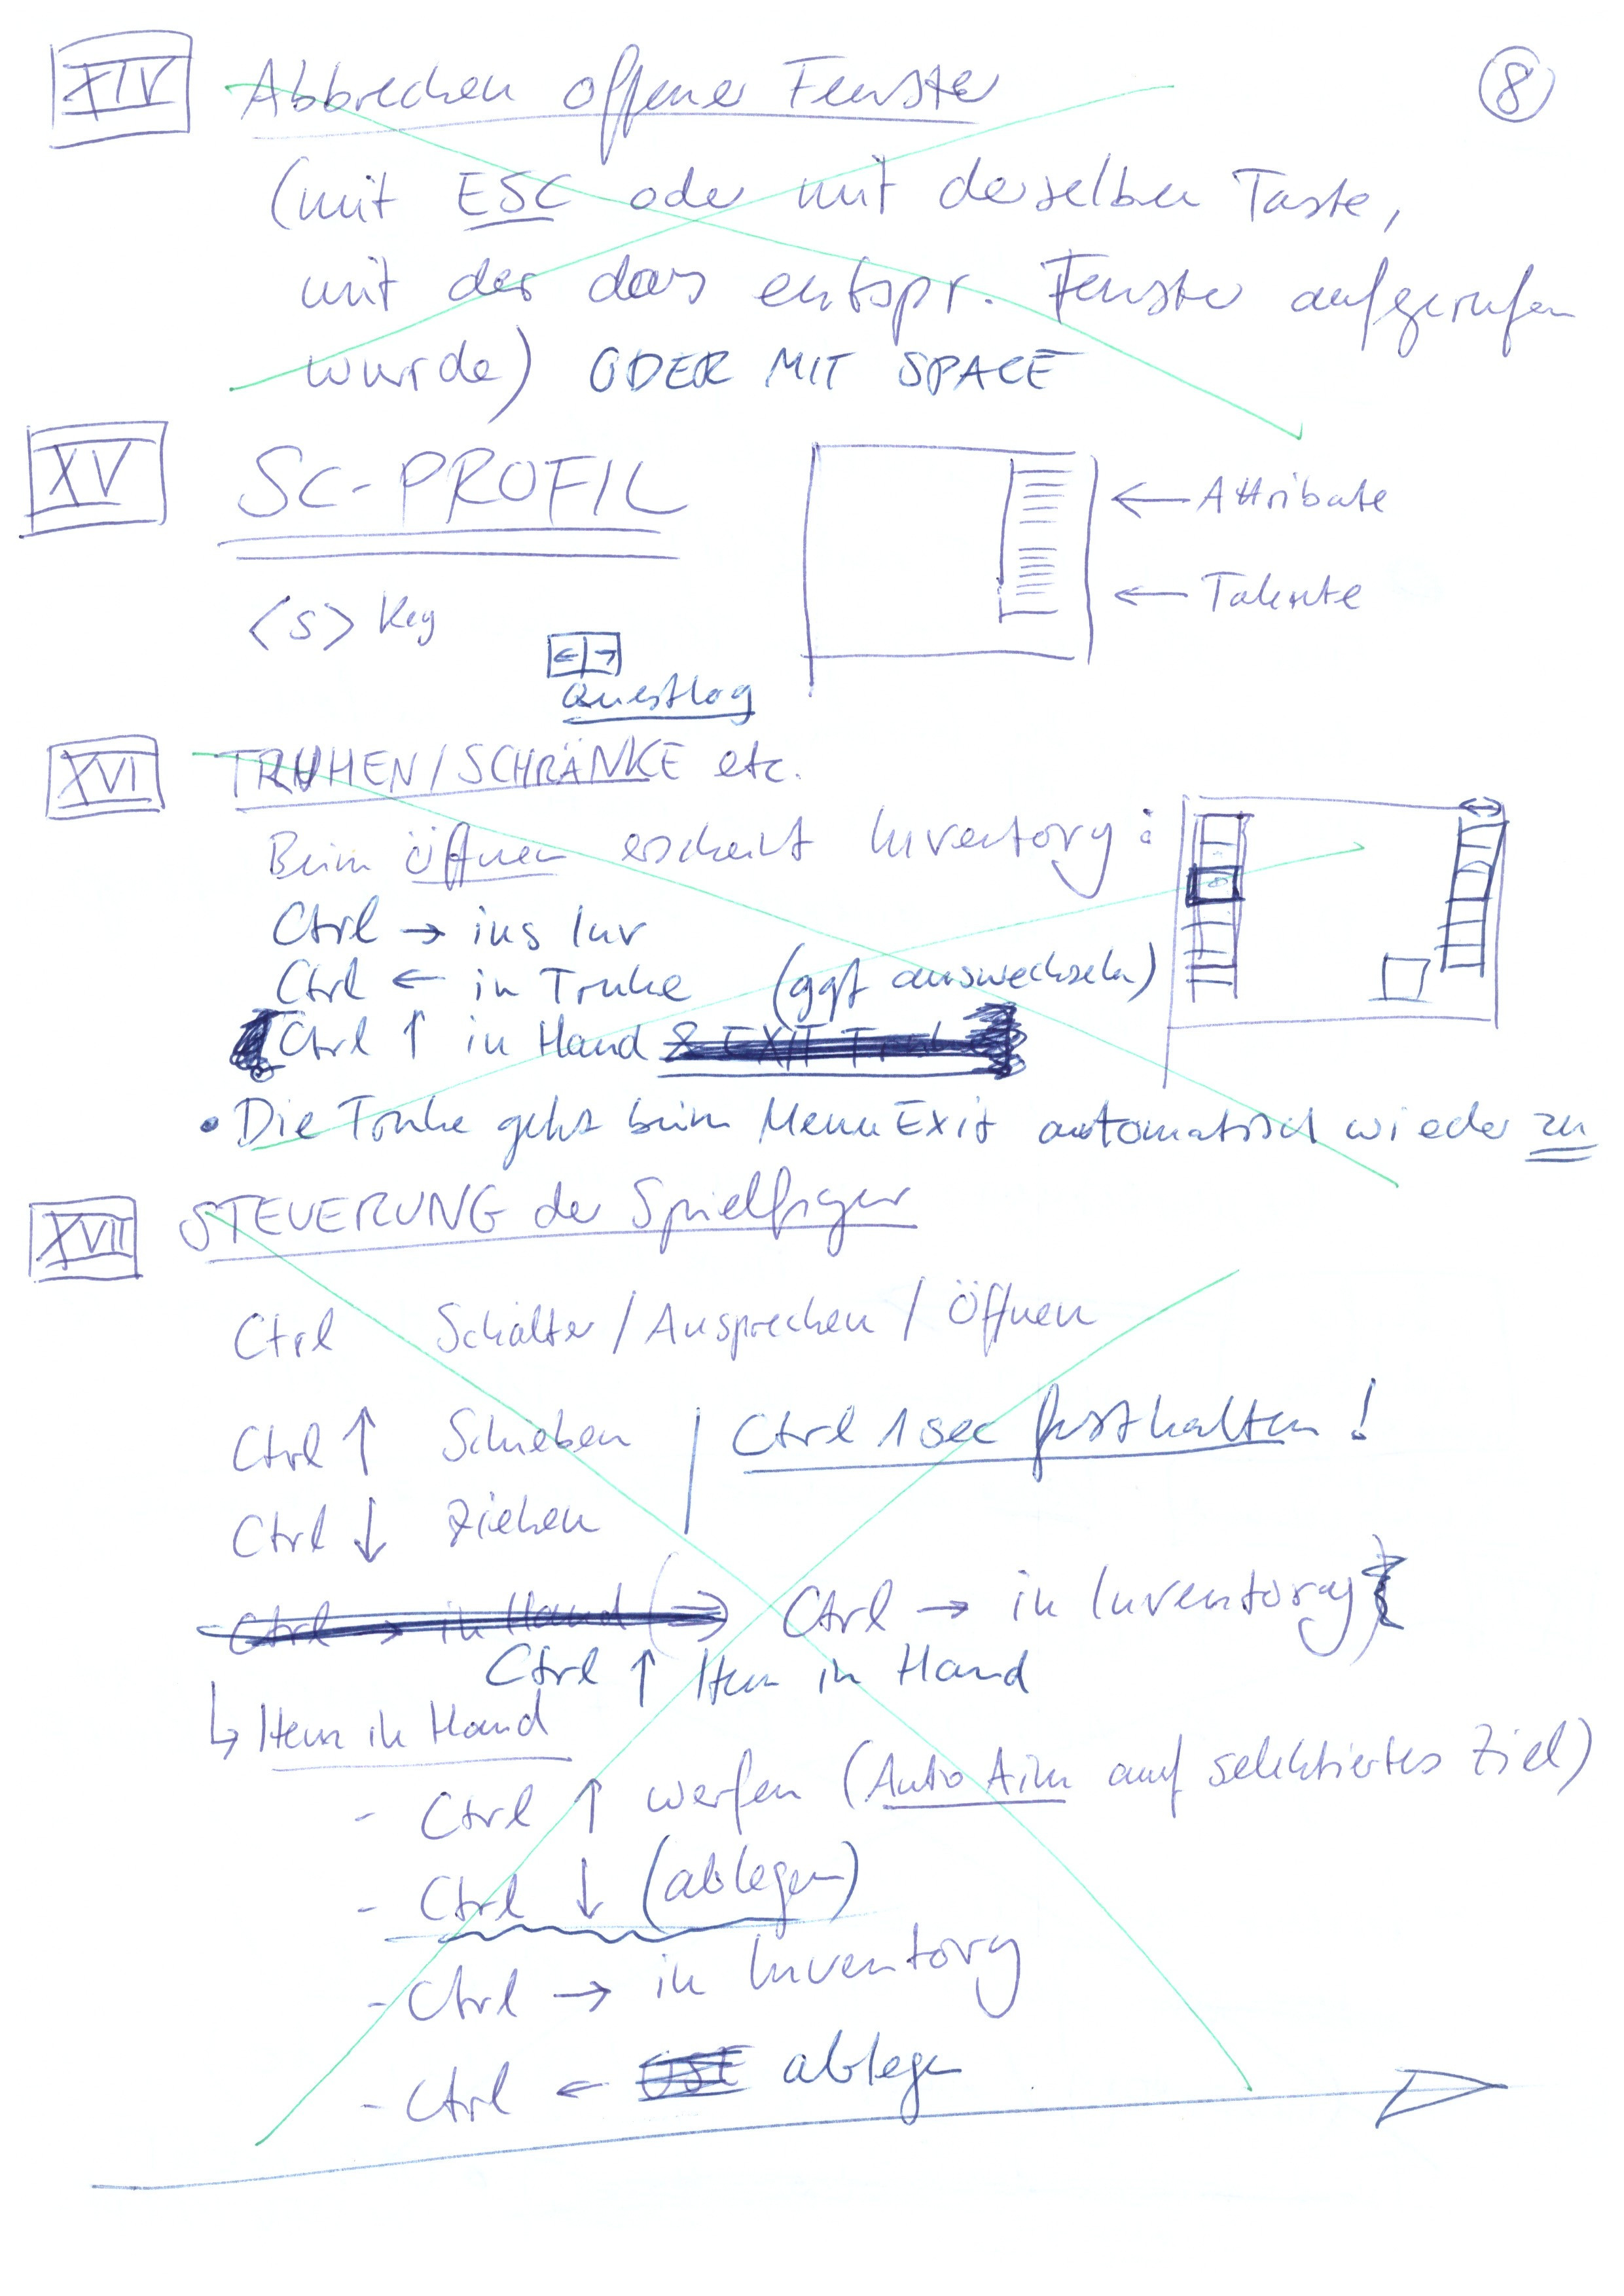 XIV Abbrechen offener Fenster
8
(mit ESC oder mit derselben Taste,
mit der das entspr. Fenster aufgerufen
wurde) ODER MIT SPACE
XV SC-PROFIL
← Attribute
← Talente
<S> Key
← →
Questlog
XVI TRUHEN/SCHRÄNKE etc.
Beim Öffnen erscheint Inventory:
Ctrl → ins Inv
Ctrl ← in Truhe (ggf auswechseln)
Ctrl ↑ in Hand & EXIT
• Die Truhe geht beim Menu Exit automatisch wieder zu
XVII STEUERUNG der Spielfigur
Ctrl Schalter / Ansprechen / Öffnen
Ctrl ↑ Schieben | Ctrl 1 sec festhalten!
Ctrl ↓ Ziehen
Ctrl → in Hand (⇒) Ctrl → in Inventory
Ctrl ↑ Item in Hand
↳ Item in Hand
- Ctrl ↑ werfen (Auto Aim auf selektiertes Ziel)
- Ctrl ↓ (ablegen)
- Ctrl → in Inventory
- Ctrl ← USE ablegen